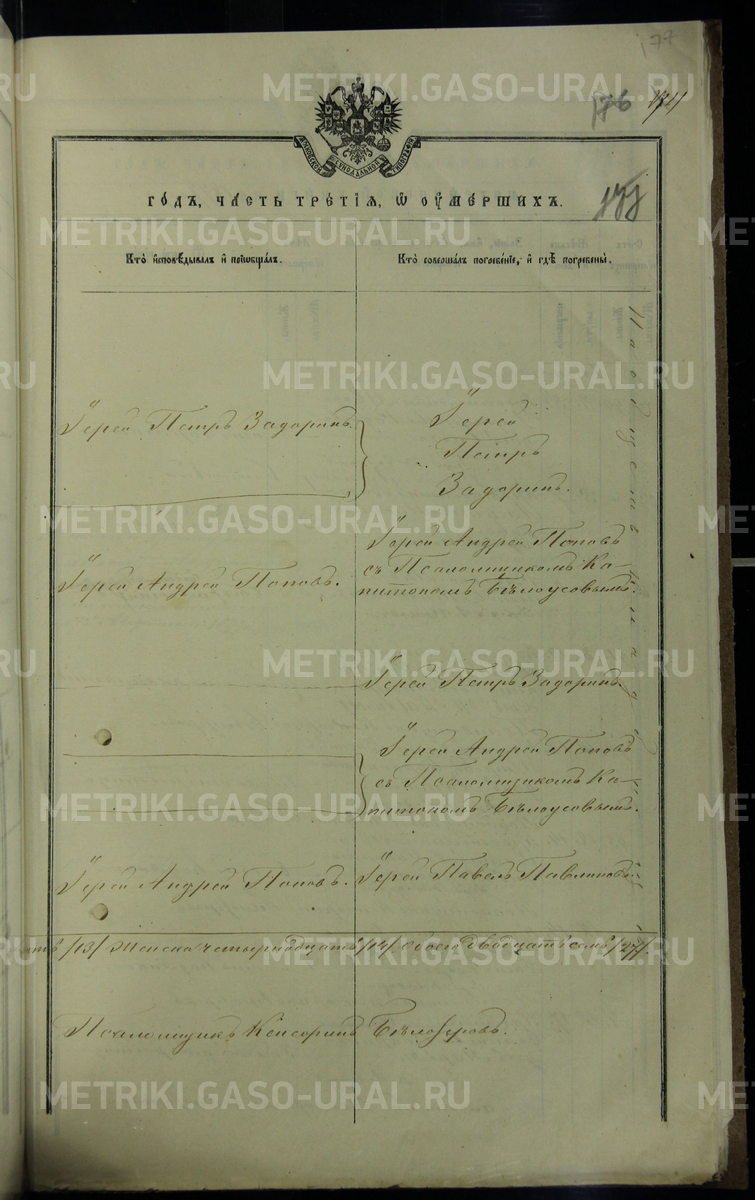 177
176
МОСКОВСКОЙ СѴНОДАЛЬНОЙ ТИПОГРАФІИ
ГОДЪ, ЧАСТЬ ТРЕТІѦ, Ѿ ОУМЕРШИХЪ.
Кто исповѣдывалъ и пріобщалъ.
Кто совершалъ погребеніе, и гдѣ погребены.
Іерей Петръ Задоринъ.
Іерей
Петръ
Задоринъ.
Іерей Андрей Поповъ.
Іерей Андрей Поповъ
съ Псаломщикомъ Ка-
питономъ Бѣлоусовымъ.
Іерей Петръ Задоринъ.
Іерей Андрей Поповъ
съ Псаломщикомъ Ка-
питономъ Бѣлоусовымъ.
Іерей Андрей Поповъ.
Іерей Павелъ Павлиновъ
На общемъ кладбищѣ
/13/ Женска четырнадцать /14/ обоего двадцать семь /27/.
Псаломщикъ Кенсоринъ Бѣлозеровъ.
METRIKI.GASO-URAL.RU